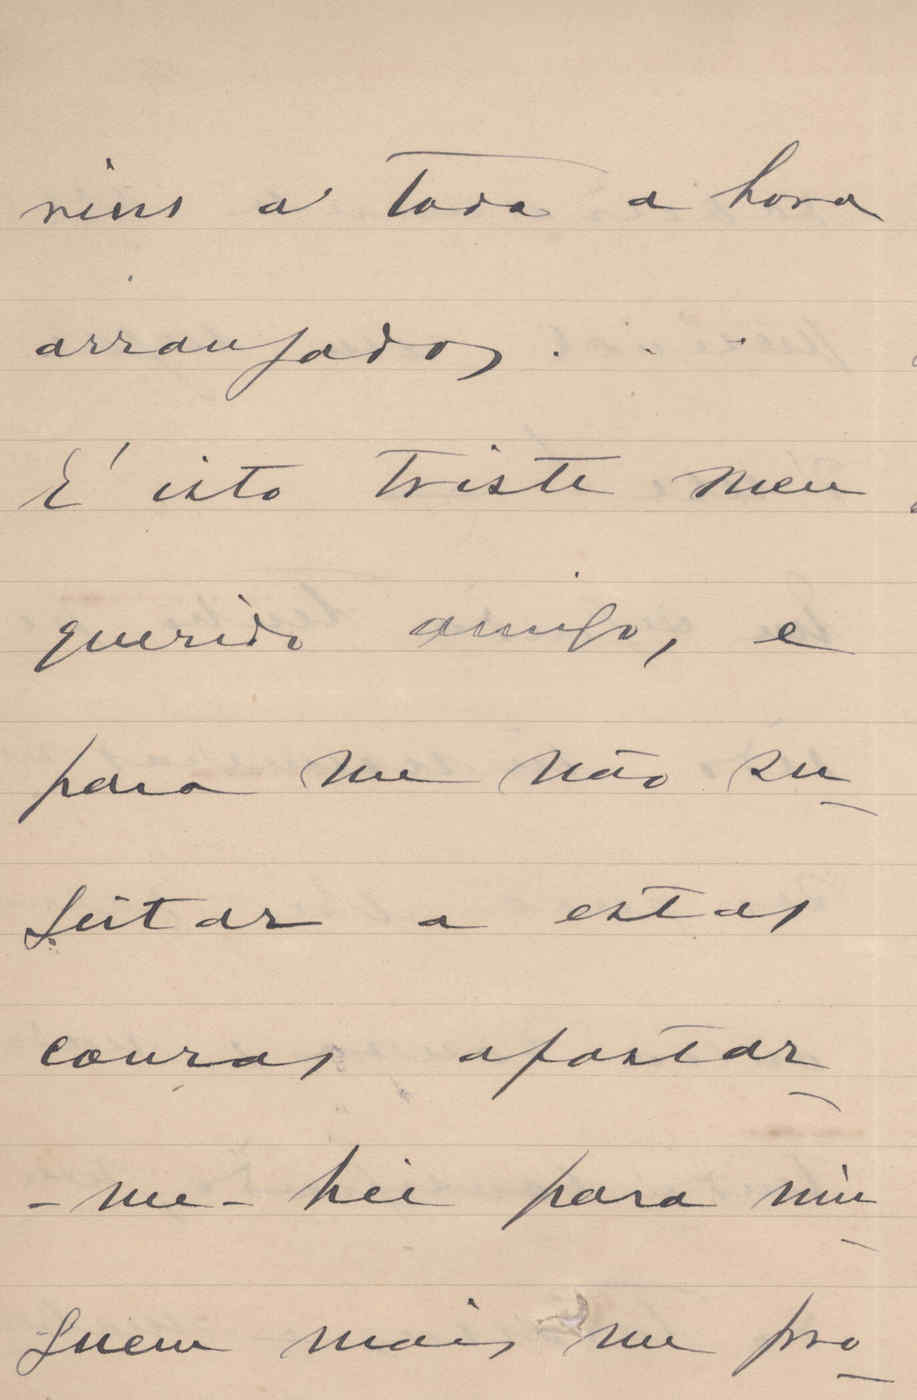 a toda a hora
arranjados . . .
É isto triste meu
querido amigo, e
para me não su-
geitar a estas
cousas afastar-
-me-hei para nin-
guem mais me pro-